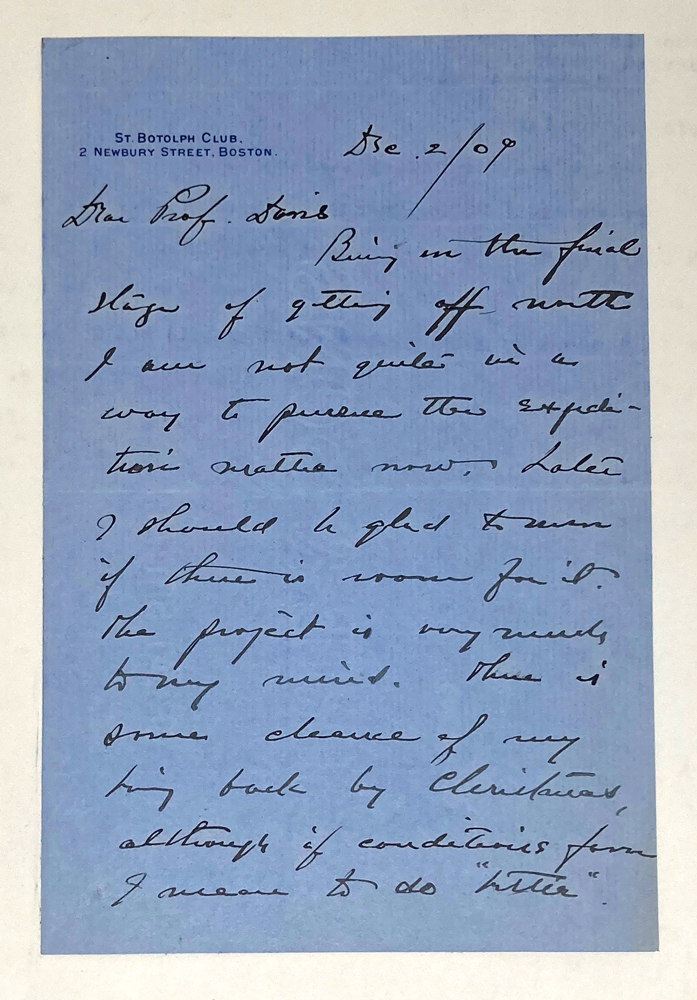 ST. BOTOLPH CLUB,
2 NEWBURY STREET, BOSTON.
Dec. 2/09
Dear Prof. Davis
Being in the final
stage of getting off north
I am not quite in a
way to pursue the expedi-
tion matter now. Later
I should be glad to
if there is room for it.
The project is very much
to my mind. There is
some chance of my
being back by Christmas,
although if conditions favor
I mean to do "better".